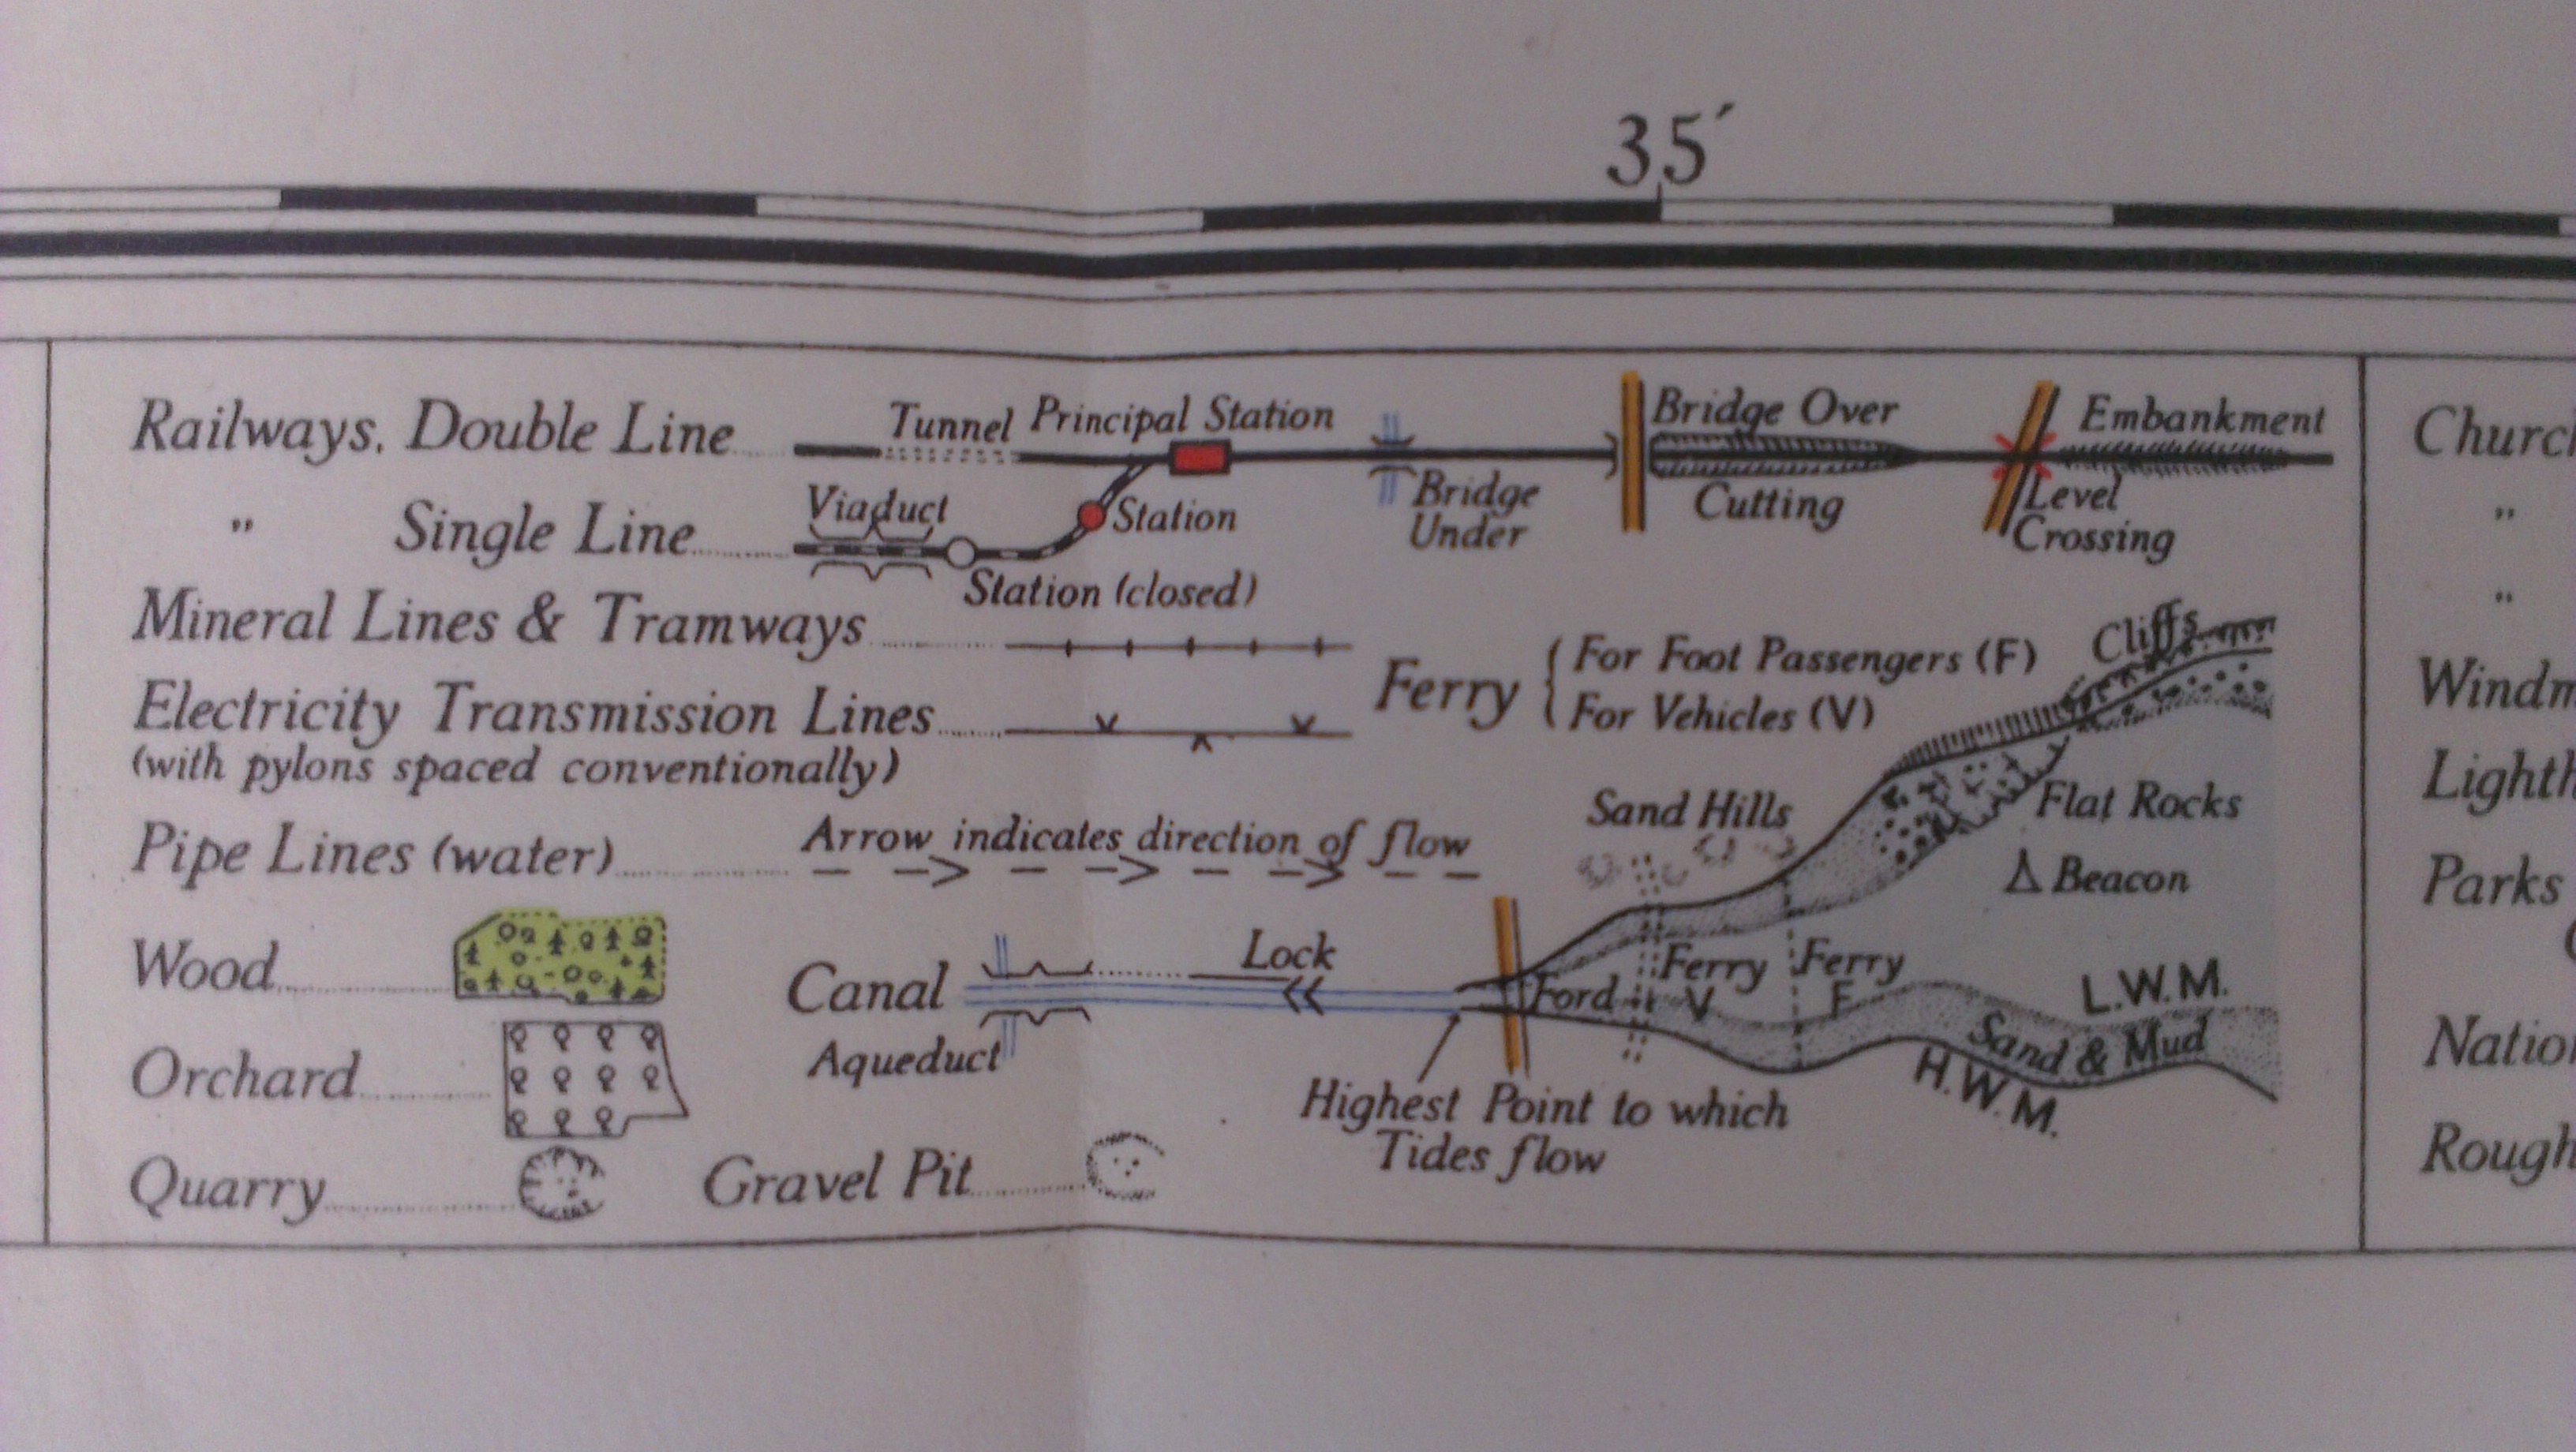 35′
Railways, Double Line
Tunnel
Principal Station
Bridge Over
Embankment
Bridge
Under
Cutting
Level
Crossing
" Single Line
Viaduct
Station
Station (closed)
Mineral Lines & Tramways
Electricity Transmission Lines
(with pylons spaced conventionally)
Ferry
For Foot Passengers (F)
For Vehicles (V)
Cliffs
Flat Rocks
Sand Hills
Beacon
Pipe Lines (water)
Arrow indicates direction of flow
Wood
Canal
Lock
Aqueduct
Ford
Ferry
V
Ferry
F
L.W.M.
Sand & Mud
H.W.M.
Highest Point to which
Tides flow
Orchard
Quarry
Gravel Pit
Churc
"
"
Windm
Lighth
Parks
Natio
Rough